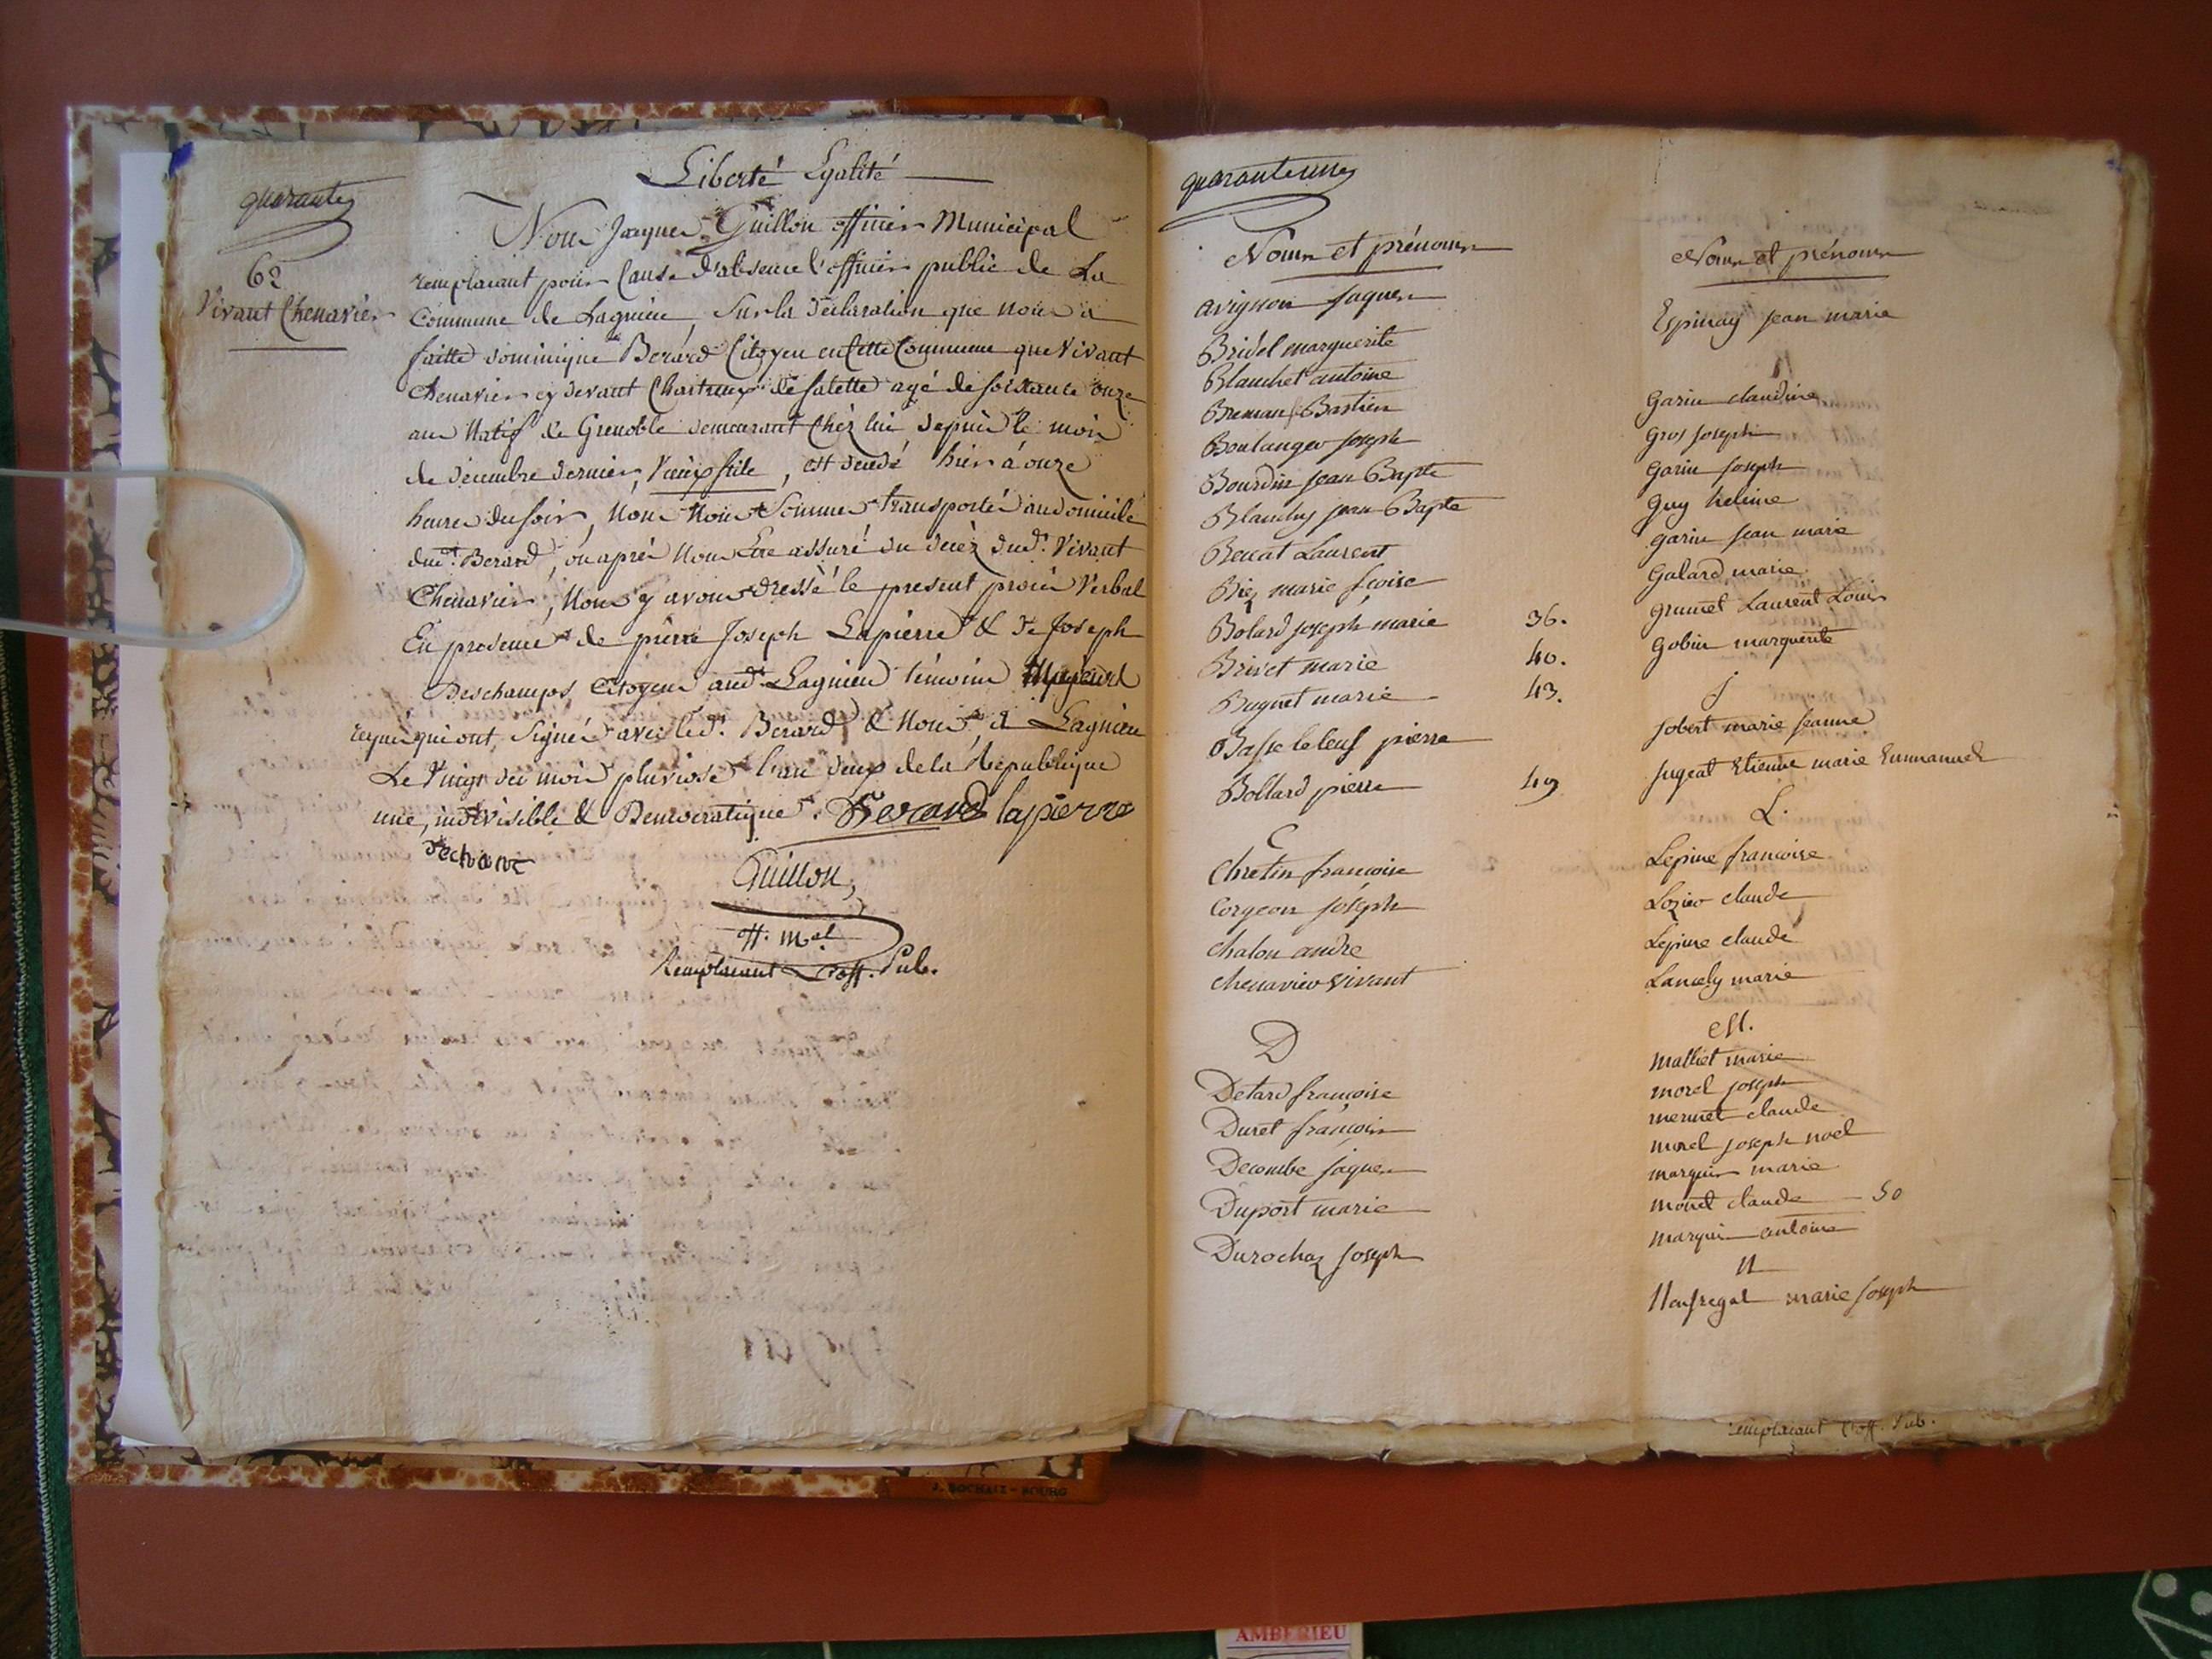 quarante
Liberté Egalité
62
Vivant Chenavier
Nous Jacques Guillon officier Municipal
remplacant pour Cause d'absence l'officier public de La
Commune de Lagnieu, Sur la declaration que nous a
faitte dominique Berard Citoyen en Cette Commune que Vivant
Chenavier cy devant Chartreux de salette agé de soistante onze
ans Natif de Grenoble demeurant Chéz lui depuis le mois
de decembre dernier, , est decedé hier à onze
heures du soir, Nous Nous Sommes transporté au domicile
dud.t Berard, ou aprés Nous Etre assuré du decéz dud.t Vivant
Chenavier, Nous y avons dressé le present procés Verbal
En presence de pierre Joseph Lapierre & de Joseph
Deschamps Citoyens aud.t Lagnieu témoins
requis qui ont Signés avec led.t Berard & Nous, à Lagnieu
Le Vingt du mois pluviose l'an deux de la Republique
une, indivisible & Democratique. Berard lapierre
dechanc
Guillon,
off. M.al
Remplacant L'off. Pub.
quarante une
Noms et prénoms
avignon Jaques
Bridel marguerite
Blanchet antoine
Bastien
Boulanger Joseph
Bourdin Jean Bapte
Blanchy jean Bapte
Bencat Laurent
Biez marie fcoise
Bolard joseph marie 36.
Brivet marie 40.
Buguet marie 43.
pierre
Bollard pierre 49
C
Chretin francoise
Corgeon Joseph
Chalon andre
Chenavier Vivant
D
Detard françoise
Duret françois
Decombe jaques
Duport marie
Durochaz Joseph
Noms et prénoms
Espinay Jean marie
Garin claudine
Gros Joseph
Garin Joseph
Guy heleine
Garin Jean marie
Galard marie
Grumet Laurent Louis
Gobin marguerite
J
Jobert marie Jeanne
Jugeat Etienne marie Emmanuel
L.
Lepine francoise
Lozier claude
Lepine claude
Lancely marie
M.
Malliet marie
morel joseph
mermet claude
morel joseph noel
marquis marie
morel claude — 50
marquis antoine
N
Neufregal marie Joseph
remplacant l'off. Pub.
J. ROCHAIX - BOURG
AMBERIEU